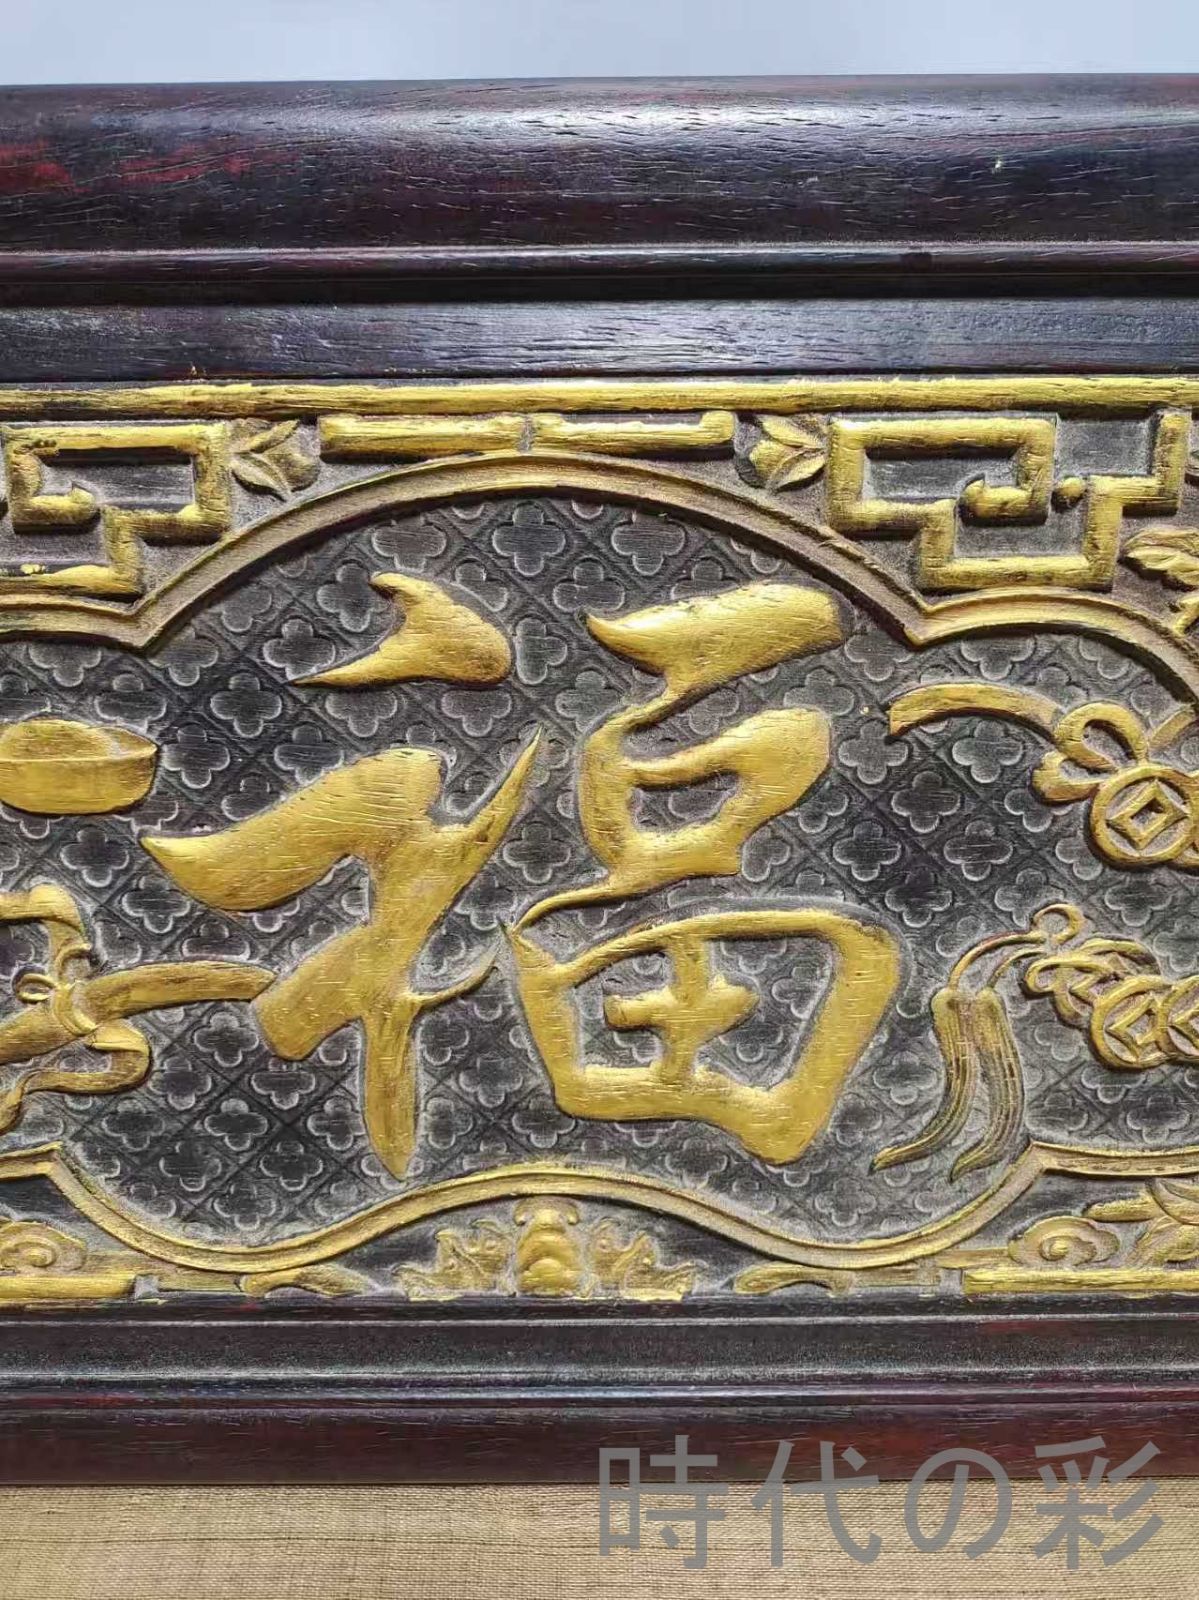 福
時代の彩